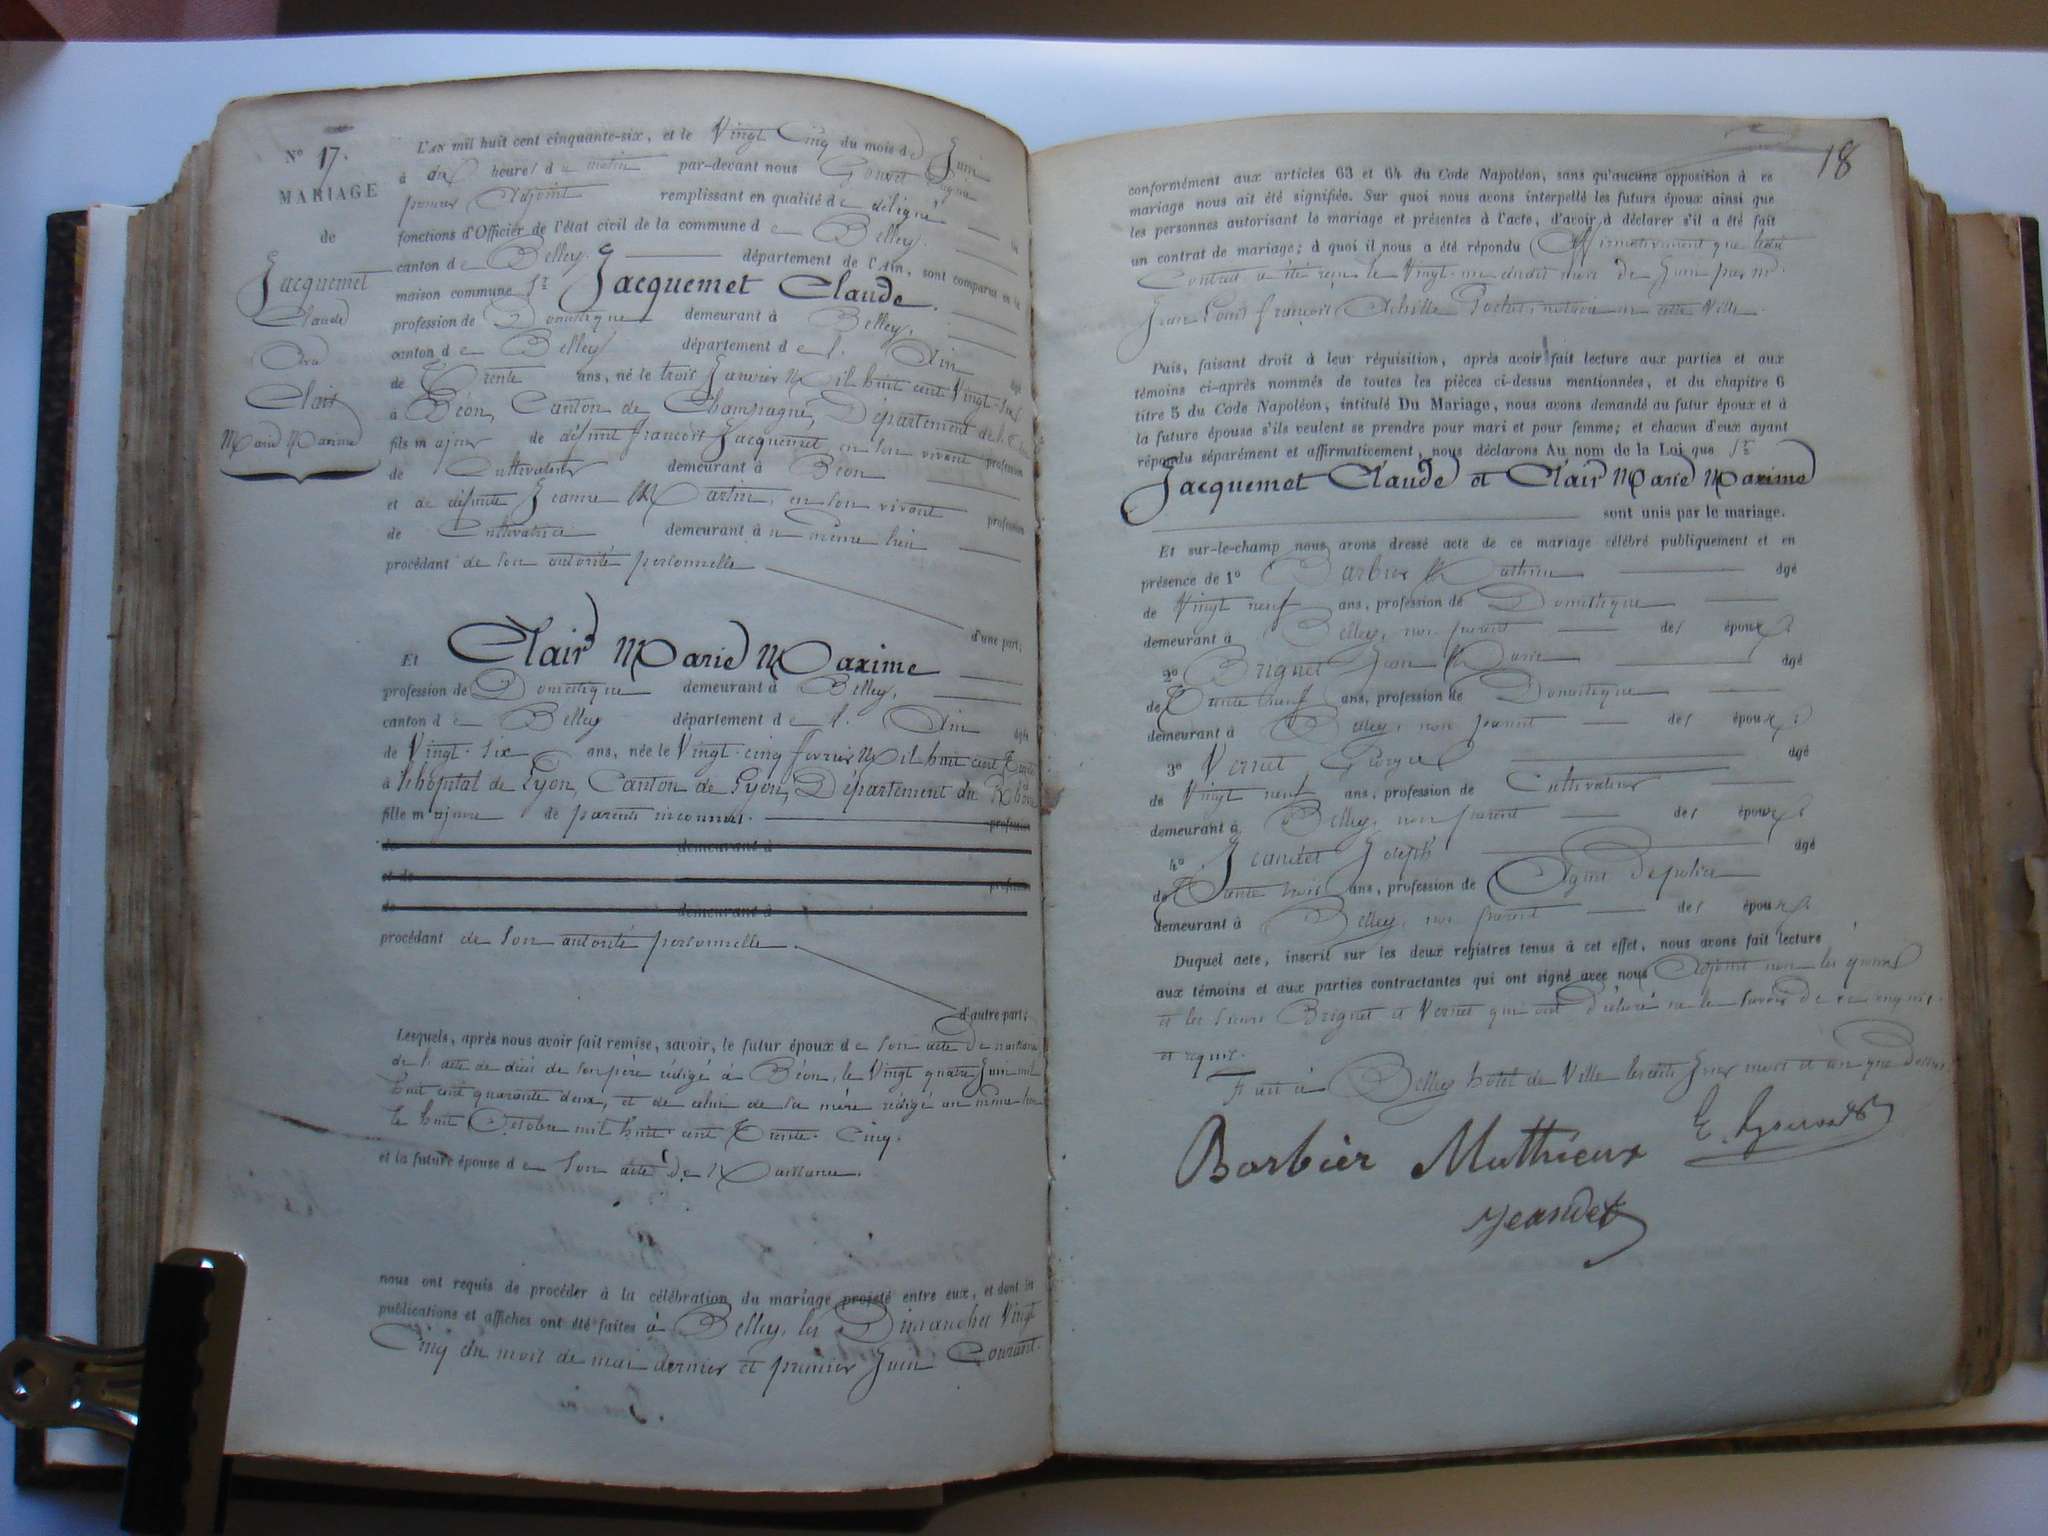 N° 17.
MARIAGE
de
Jacquemet
Claude
Clair
Marie Maxime
L'an mil huit cent cinquante-six, et le Vingt Cinq du mois de Juin
à dix heures du matin par-devant nous Gouvet
premier Adjoint remplissant en qualité de délégué les
fonctions d'Officier de l'état civil de la commune de Belley.
canton de Belley. département de l'Ain, sont comparus en la
maison commune Sr Jacquemet Claude.
profession de Domestique demeurant à Belley,
canton de Belley département de l'Ain âgé
de Trente ans, né le trois Janvier Mil huit cent Vingt-six
à Béon, Canton de Champagne, Département de l'Ain
fils majeur de défunt françois Jacquemet en son vivant profession
de Cultivateur demeurant à Béon
et de défunte Jeanne Martin, en son vivant profession
de Cultivatrice demeurant à u même lieu
procédant de son autorité personnelle
d'une part;
Et Clair Marie Maxime
profession de Domestique demeurant à Belley,
canton de Belley département de l'Ain âgée
de Vingt-six ans, née le Vingt-cinq fevrier Mil huit cent Trente
à l'hôpital de Lyon, Canton de Lyon, Département du Rhône
fille majeure de parents inconnus. profession
de demeurant à
et de profession
de demeurant à
procédant de son autorité personnelle.
d'autre part;
Lesquels, après nous avoir fait remise, savoir, le futur époux de son acte de naissance
de l'acte de décès de son père rédigé à Béon, le Vingt quatre Juin mil
huit cent quarante deux, et de celui de sa mère rédigé au même lieu
le huit Octobre mil huit cent Trente-Cinq.
et la future épouse de son acte de Naissance.
nous ont requis de procéder à la célébration du mariage projeté entre eux, et dont les
publications et affiches ont été faites à Belley, les Dimanches Vingt
Cinq du mois de mai dernier et premier Juin Courant.
18
conformément aux articles 63 et 64 du Code Napoléon, sans qu'aucune opposition à ce
mariage nous ait été signifiée. Sur quoi nous avons interpellé les futurs époux ainsi que
les personnes autorisant le mariage et présentes à l'acte, d'avoir à déclarer s'il a été fait
un contrat de mariage; à quoi il nous a été répondu Affirmativement que leur
Contrat a été reçu le Vingt-un dudit mois de Juin par Me
Jean Louis françois Achille Pochet, notaire en cette Ville.
Puis, faisant droit à leur réquisition, après avoir fait lecture aux parties et aux
témoins ci-après nommés de toutes les pièces ci-dessus mentionnées, et du chapitre 6
titre 5 du Code Napoléon, intitulé Du Mariage, nous avons demandé au futur époux et à
la future épouse s'ils veulent se prendre pour mari et pour femme; et chacun d'eux ayant
répondu séparément et affirmativement, nous déclarons Au nom de la Loi que Sr
Jacquemet Claude et Clair Marie Maxime
sont unis par le mariage.
Et sur-le-champ nous avons dressé acte de ce mariage célébré publiquement et en
présence de 1° Barbier Mathieu âgé
de Vingt neuf ans, profession de Domestique
demeurant à Belley, non parent des époux
2° Briguet Jean Marie âgé
de Trente neuf ans, profession de Domestique
demeurant à Belley, non parent des époux
3° Vernet Georges âgé
de Vingt neuf ans, profession de Cultivateur
demeurant à Belley, non parent des époux
4° Jeandet Joseph âgé
de Trente trois ans, profession de Agent de police
demeurant à Belley, non parent des époux.
Duquel acte, inscrit sur les deux registres tenus à cet effet, nous avons fait lecture
aux témoins et aux parties contractantes qui ont signé avec nous Adjoint non les époux
et les sieurs Briguet et Vernet qui ont déclaré ne le savoir de ce enquis
et requis.
Fait à Belley hôtel de Ville lesdits Jour mois et an que dessus
Barbier Mathieux E. Gouvet
Jeandet